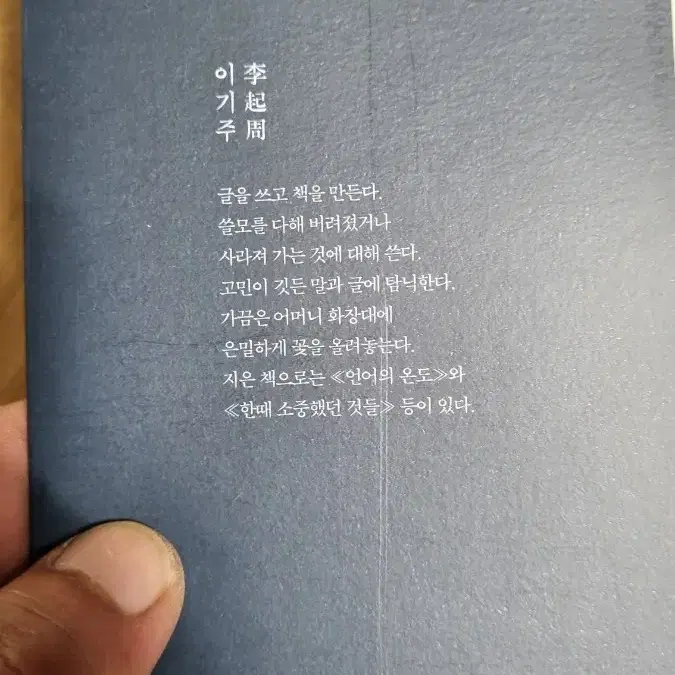 李起周
이기주
글을 쓰고 책을 만든다.
쓸모를 다해 버려졌거나
사라져 가는 것에 대해 쓴다.
고민이 깃든 말과 글에 탐닉한다.
가끔은 어머니 화장대에
은밀하게 꽃을 올려놓는다.
지은 책으로는 ≪언어의 온도≫와
≪한때 소중했던 것들≫ 등이 있다.